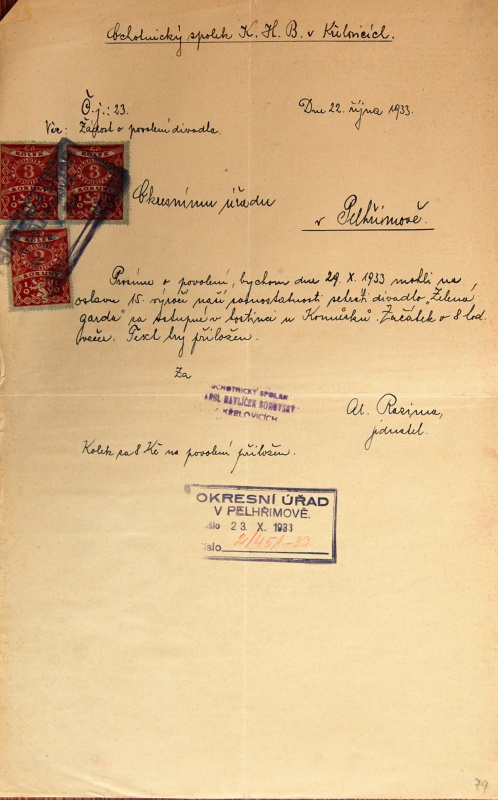 Ochotnický spolek K. H. B. v Křelovicích.
Č. j.: 23.
Dne 22. října 1933.
Věc: Žádost o povolení divadla.
KOLEK
3
KORUNY
KOLEK
3
KORUNY
KOLEK
2
KORUNY
Okresnímu úřadu
v Pelhřimově.
Prosíme o povolení, bychom dne 29. X. 1933 mohli na
oslavu 15. výročí naší samostatnosti sehráti divadlo "Zelená
garda" za vstupné v hostinci u Komůrků. Začátek o 8 hod.
večer. Text hry přiložen.
Za
OCHOTNICKÝ SPOLEK
KAREL HAVLÍČEK BOROVSKÝ
V KŘELOVICÍCH
Al. Rozima,
jednatel.
Kolek za 8 Kč na povolení přiložen.
OKRESNÍ ÚŘAD
V PELHŘIMOVĚ.
došlo 23. X. 1933
číslo
79